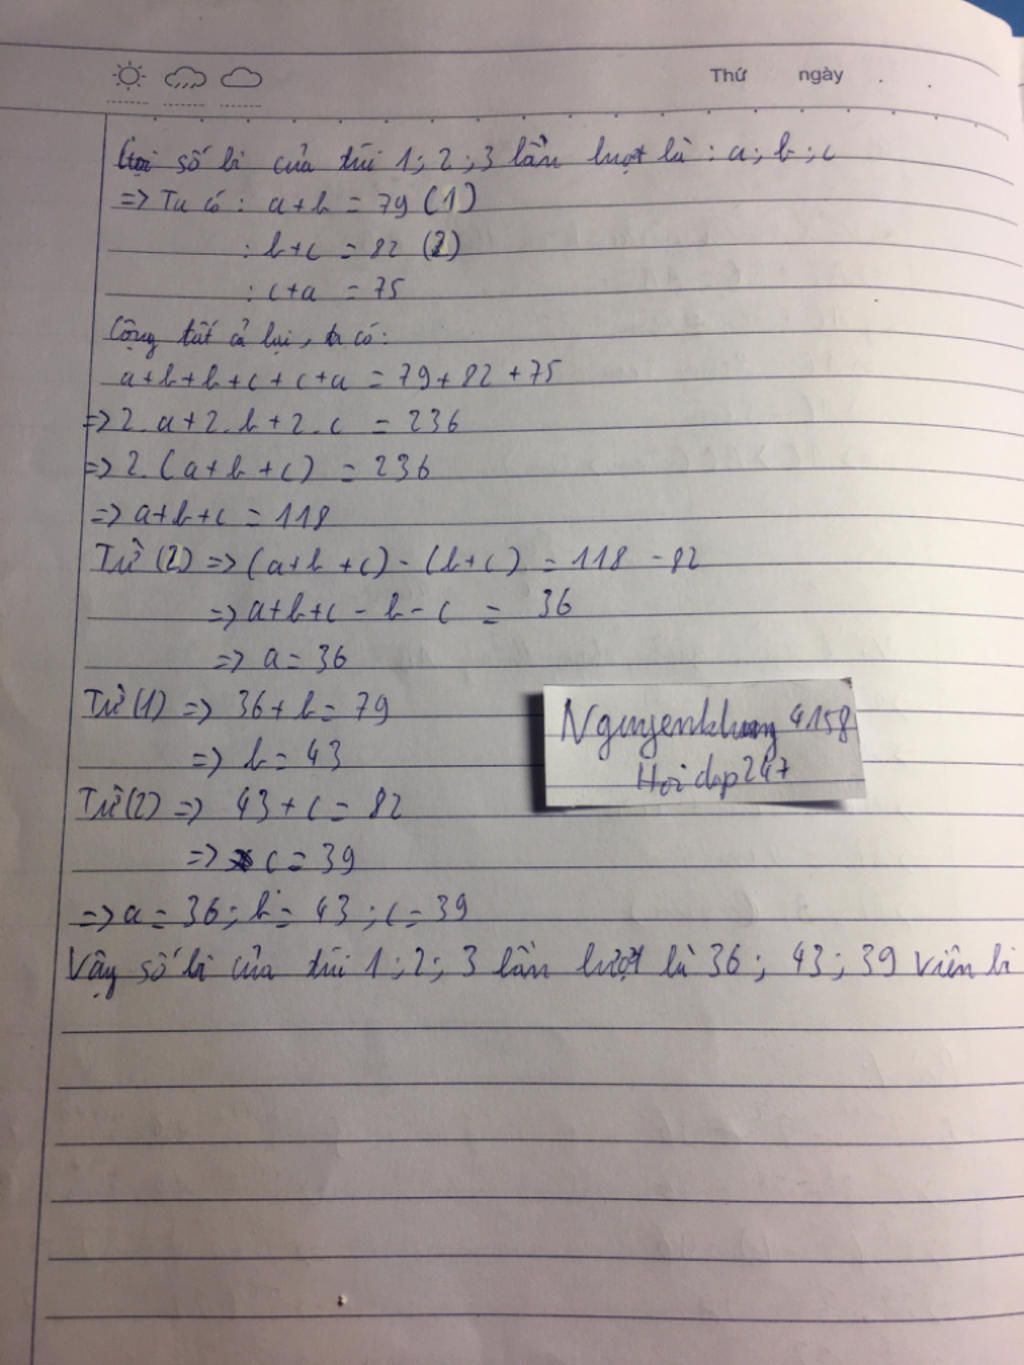 Thứ ngày
Gọi số bi của túi 1; 2; 3 lần lượt là : a; b; c
=> Ta có : a+b = 79 (1)
: b+c = 82 (2)
: c+a = 75
Cộng tất cả lại, ta có:
a+b+b+c+c+a = 79+82+75
=> 2.a+2.b+2.c = 236
=> 2.(a+b+c) = 236
=> a+b+c = 118
Từ (2) => (a+b+c)-(b+c) = 118-82
=> a+b+c-b-c = 36
=> a = 36
Từ (1) => 36+b = 79
=> b = 43
Từ (2) => 43+c = 82
=> c = 39
=> a = 36; b = 43; c = 39
Vậy số bi của túi 1; 2; 3 lần lượt là 36; 43; 39 viên bi
Nguyenkhung 4158
Hoidap247